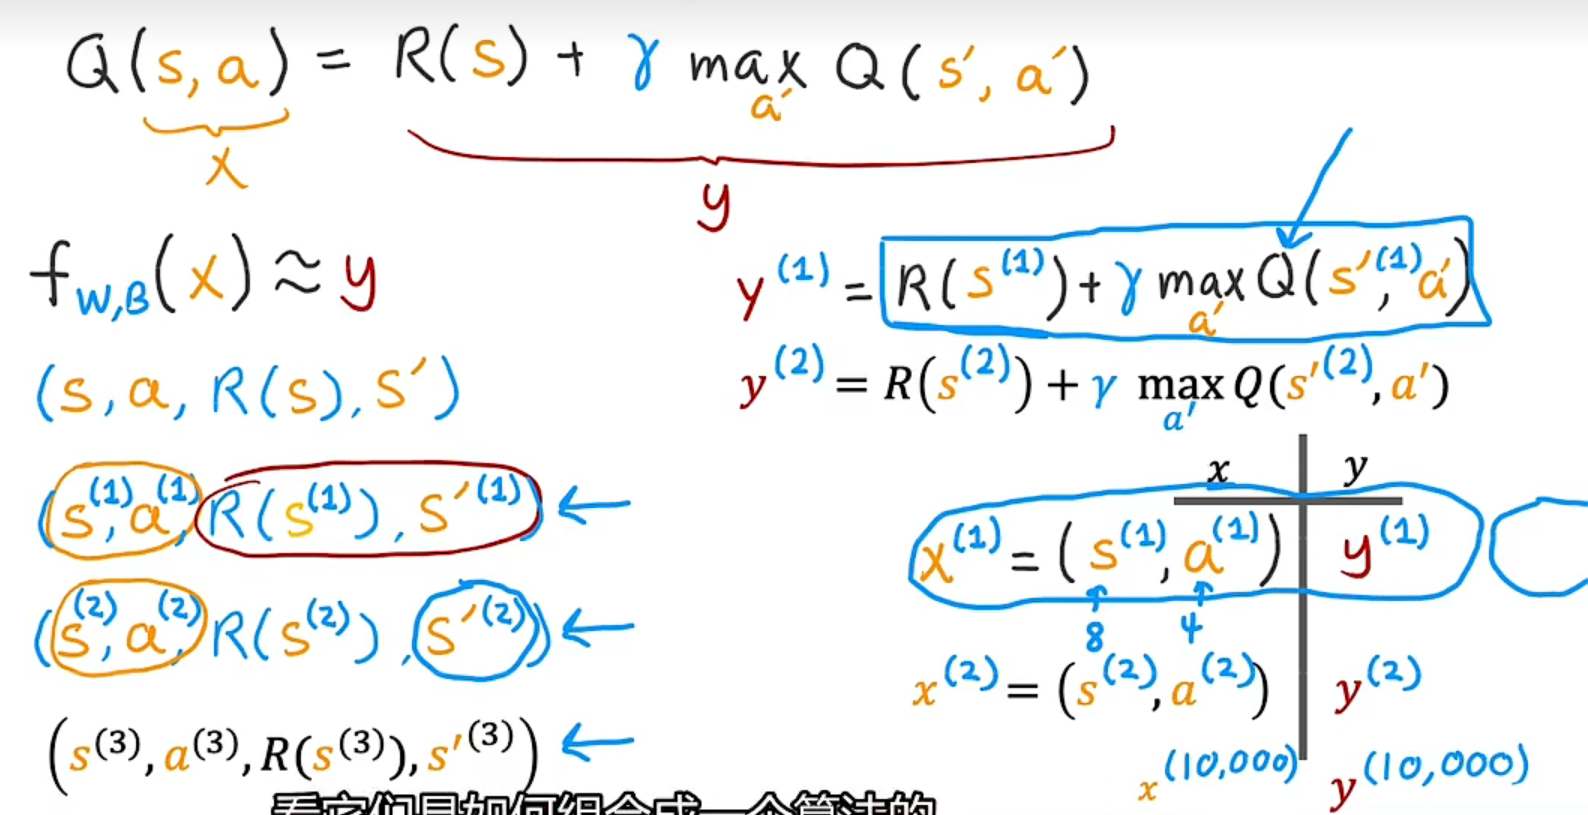 Q(s, a) = R(s) + γ max Q(s′, a′)
a′
x
y
f W,B (x) ≈ y
(s, a, R(s), s′)
(s(1), a(1), R(s(1)), s′(1)) ←
(s(2), a(2), R(s(2)), s′(2)) ←
(s(3), a(3), R(s(3)), s′(3)) ←
y(1) = R(s(1)) + γ max Q(s′(1), a′)
a′
y(2) = R(s(2)) + γ max Q(s′(2), a′)
a′
x y
x(1) = (s(1), a(1)) y(1)
8 4
x(2) = (s(2), a(2)) y(2)
x(10,000) y(10,000)
看它们是如何组合成一个算法的